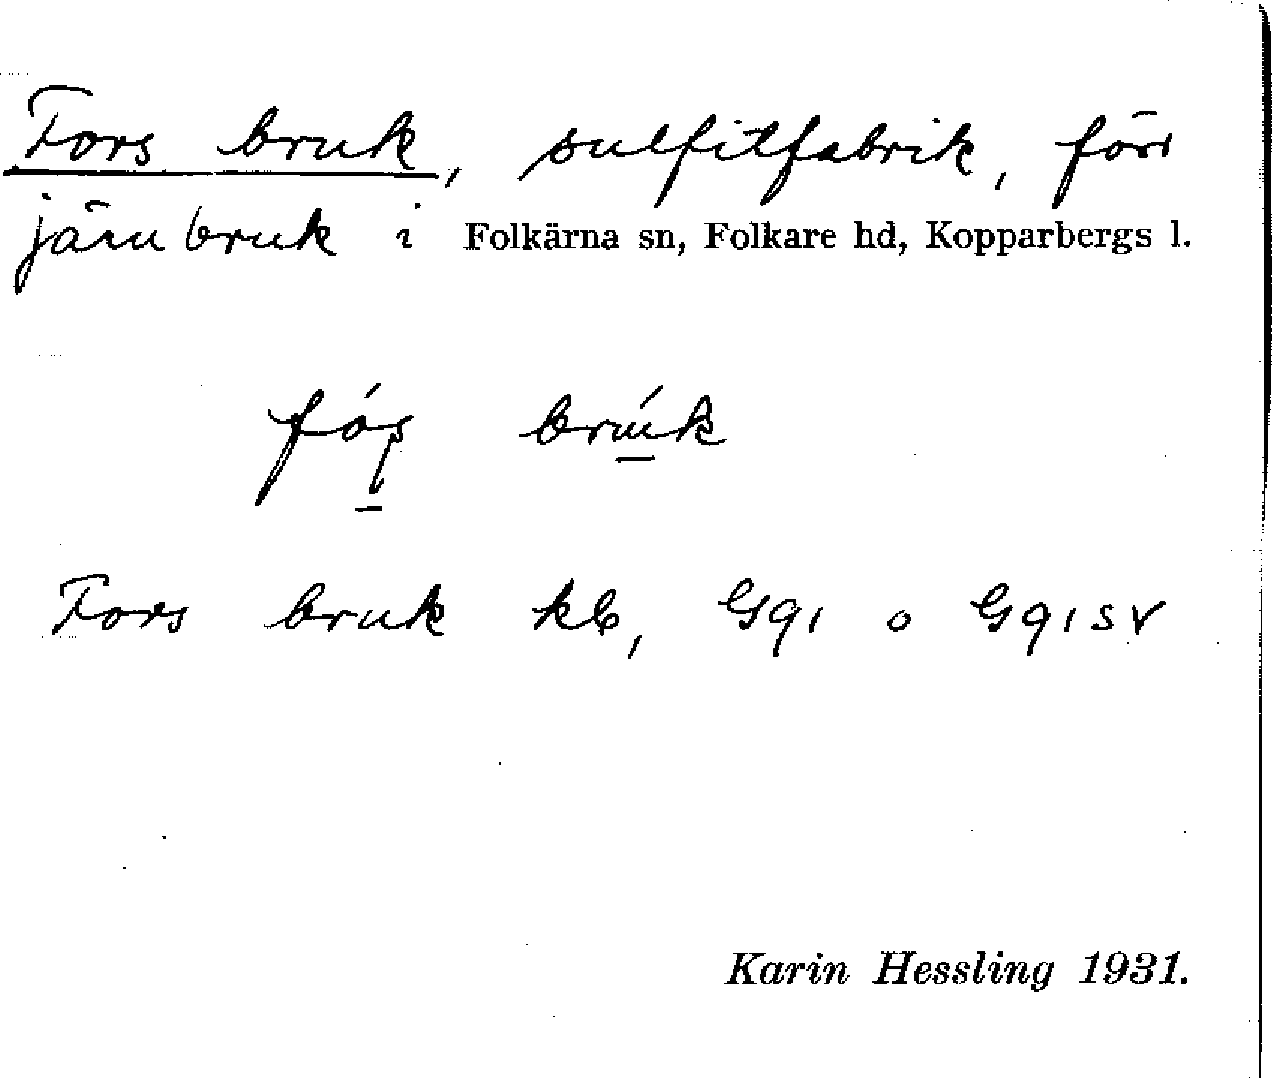 Fors bruk, sulfitfabrik, förr
järnbruk i Folkärna sn, Folkare hd, Kopparbergs l.
bruk
Fors bruk kb, G91 o G91 SV
Karin Hessling 1931.